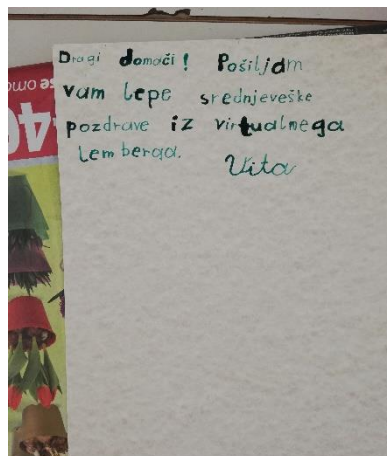 Dragi domači! Pošiljam
vam lepe srednjeveške
pozdrave iz virtualnega
lemberga.
Vita